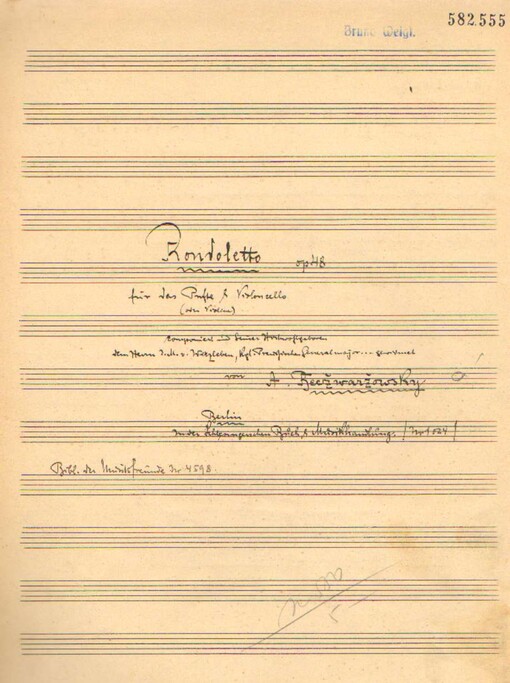 582.555
Bruno Weigl.
Rondoletto op 48
für das Pfte & Violoncello
(oder Violine)
componiert und Seiner Hochwohlgeboren
dem Herrn v. Witzleben, Kgl. Preußischer Generalmajor ... gewidmet
von A.
Berlin
In der Schlesingerschen Buch & Musikhandlung. / No 1024 /
Bibl. der Musikfreunde No 4598.